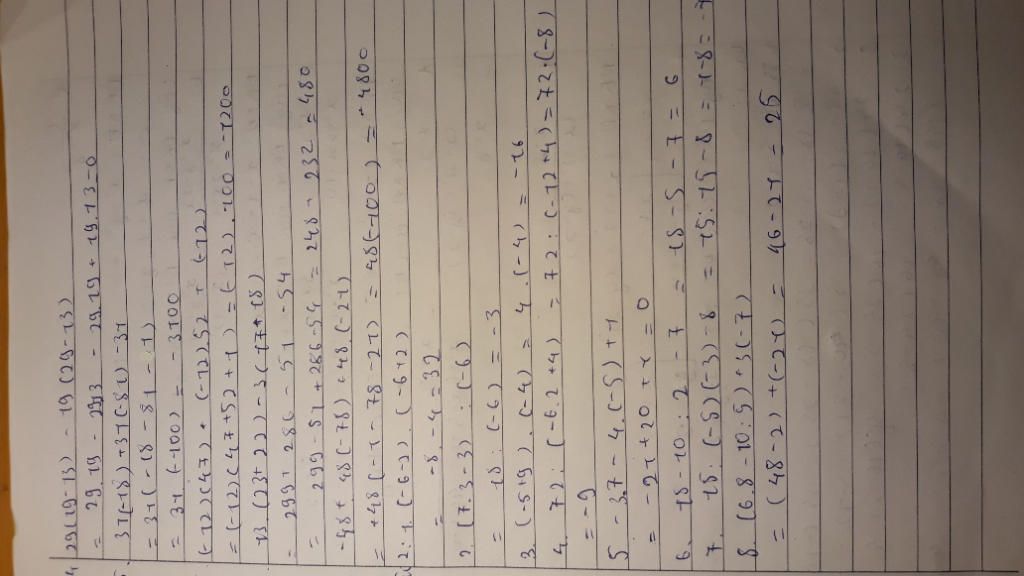 4 29(19-13) - 19(29-13)
= 29.19 - 29.13 - 29.19 + 19.13 = 0
31(-18) + 31(-81) - 31
= 31(-18 - 81 - 1)
= 31(-100) = -3100
(-12)(47) + (-12)52 + (-12)
= (-12)(47+52+1) = (-12).100 = -1200
13.(23+22) - 3(17+28)
= 299 + 286 - 51 - 54
= 299 - 51 + 286 - 54 = 248 + 232 = 480
-48 + 48(-78) + 48.(-21)
= +48(-1 - 78 - 21) = 48(-100) = -4800
2: 1. (-6-2).(-6+2)
= -8.-4 = 32
2. (7.3-3) : (-6)
= 18 : (-6) = -3
3. (-5+9).(-4) = 4.(-4) = -16
4. 72 : (-6.2+4) = 72 : (-12+4) = 72:(-8)
= -9
5 -3.7 - 4.(-5) + 1
= -21 + 20 + 1 = 0
6. 18 - 10 : 2 - 7 = 18 - 5 - 7 = 6
7. 15 : (-5)(-3) - 8 = 15 : 15 - 8 = 1 - 8 = -7
8. (6.8 - 10:5) + 3(-7)
= (48-2) + (-21) = 46 - 21 = 25